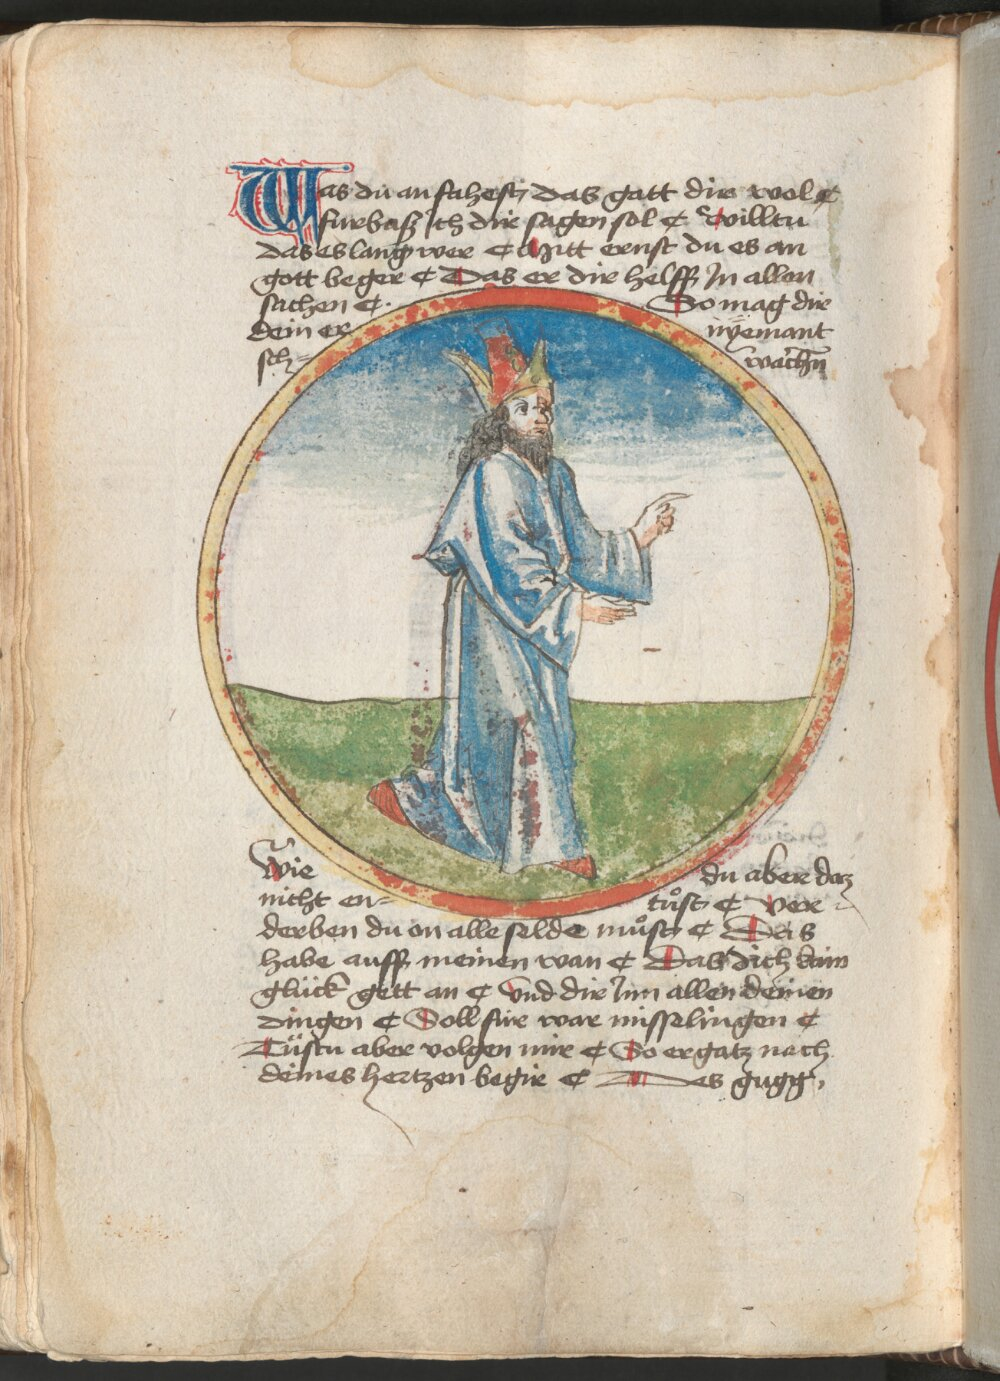 Was du an fahest das gatt dir wol ¢
furbaß Ich dir sagen sol ¢ Willtu
das es lang wer ¢ Mitt ernst du es an
gott beger ¢ Das er dir helff In allen
sachen ¢ So mag dir
dein er nÿemant
sch= wachñ
Wie du aber daz
nicht en= tůst ¢ Ver
derben du on alle selde můst ¢ Das
habe auff meinen wan ¢ Das dich kain
glück gett an ¢ Vnd dir Inn allen deinen
dingen ¢ Soll fur war misselingen ¢
Tüstu aber volgen mir ¢ So ergatz nach
deines hertzen begir ¢ Des gugg,